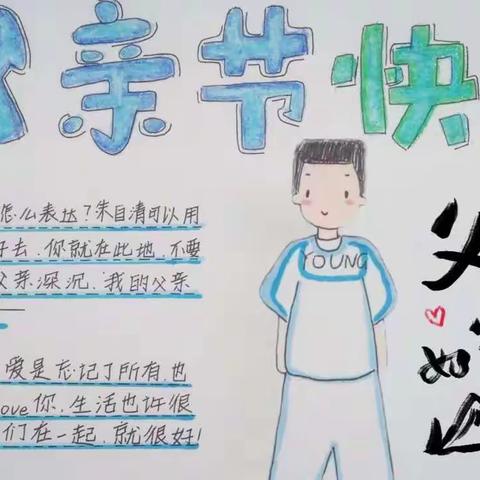 亲节快
怎么表达?朱自清可以用
好去,你就在此地,不要
父亲深沉,我的父亲
爱是忘记了所有,也
love你,生活也许很
们在一起,就很好!
YOUNG
父
如